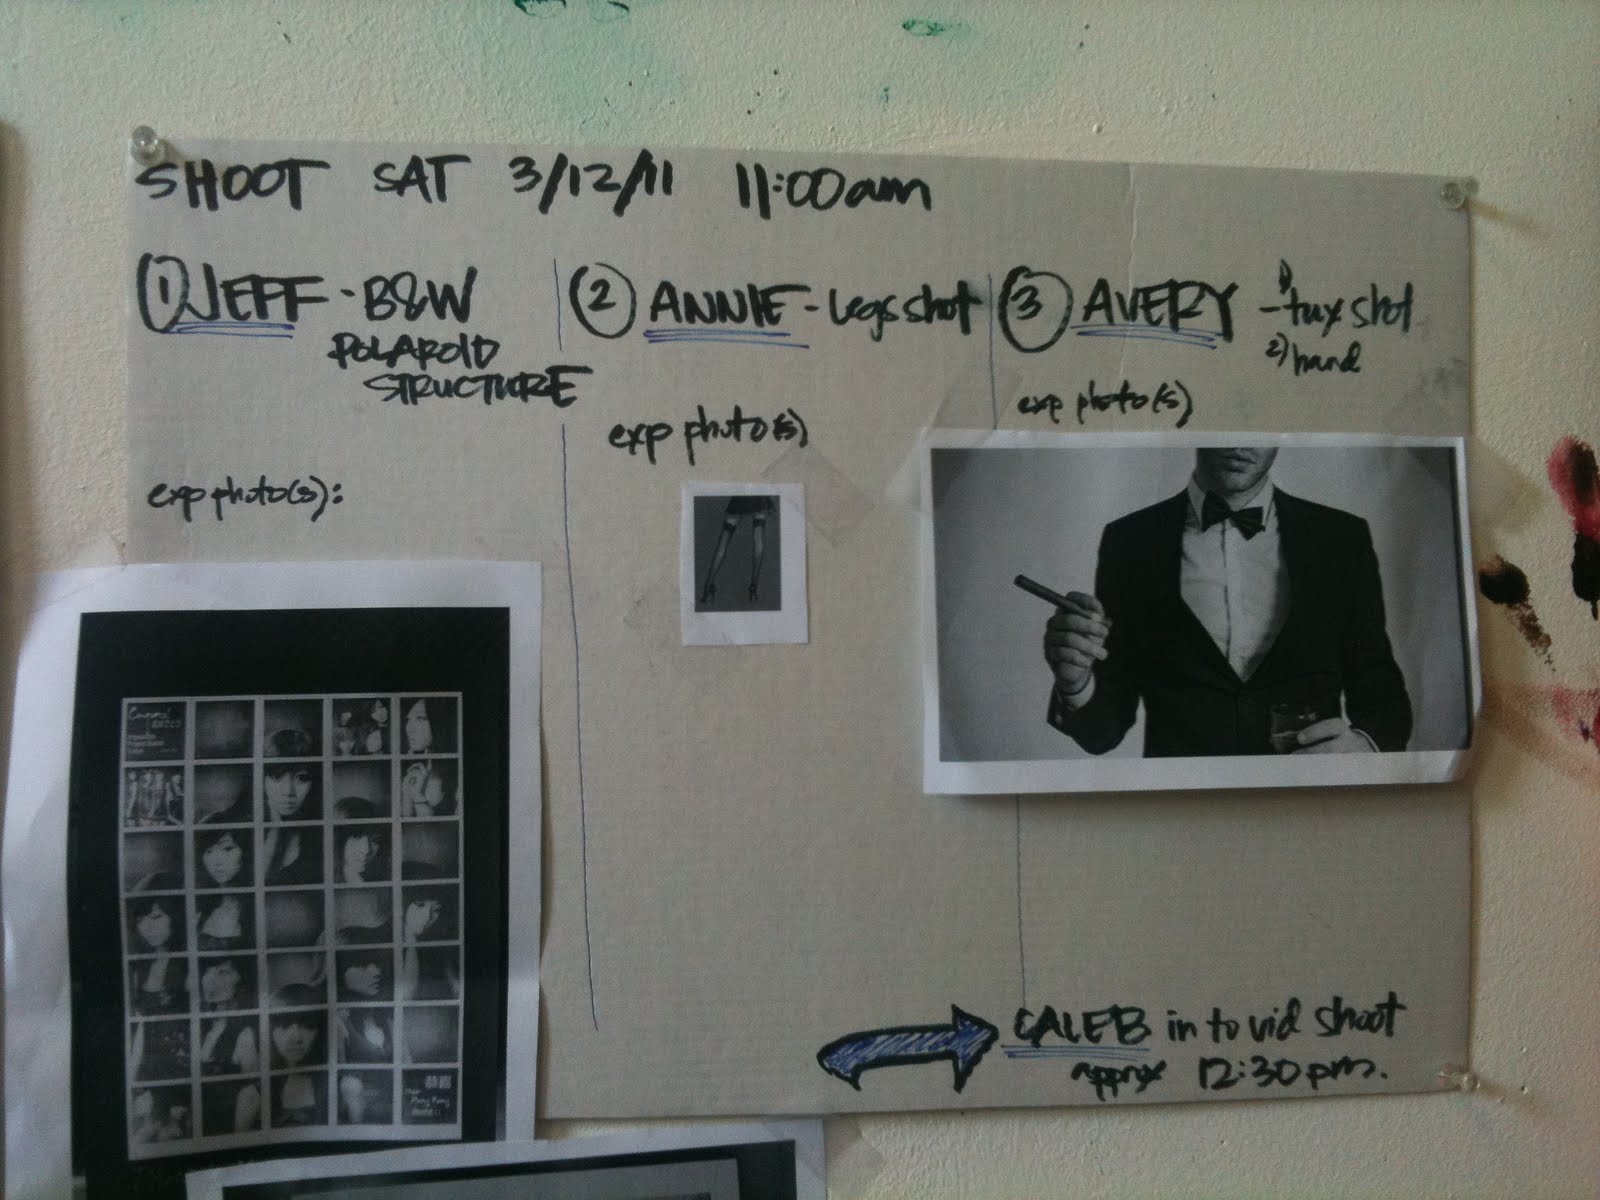 SHOOT SAT 3/12/11 11:00am
① JEFF - B&W
POLAROID
STRUCTURE
exp photo(s):
② ANNIE - Legs shot
exp photo(s)
③ AVERY - 1) tux shot
2) hand
exp photo(s)
CALEB in to vid shoot
approx 12:30pm.